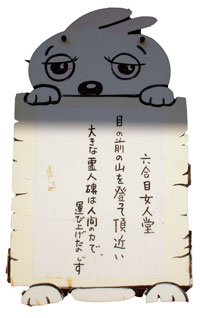 六合目女人堂
目の前の山を登そ頂近い
大きな霊人碑は人間の力で
運び上げたのです